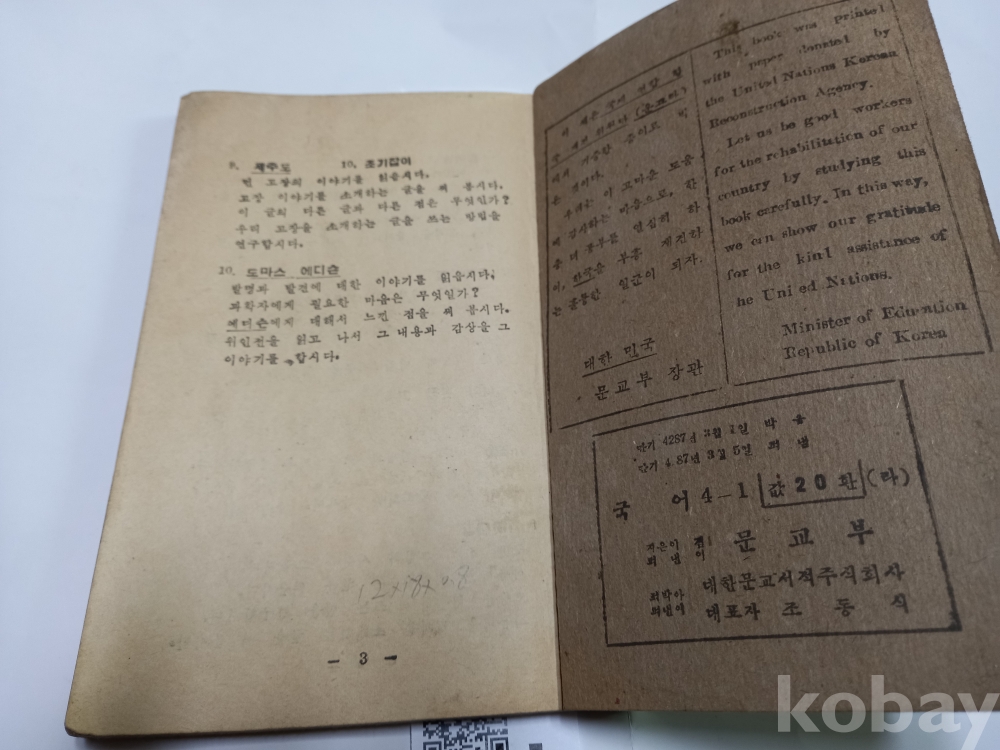 9. 제주도 10. 조기잡이
먼 고장의 이야기를 읽읍시다.
고장 이야기를 소개하는 글을 써 봅시다.
이 글의 다른 글과 다른 점은 무엇인가?
우리 고장을 소개하는 글을 쓰는 방법을
연구합시다.
10. 도마스 에디슨
발명과 발견에 대한 이야기를 읽읍시다.
과학자에게 필요한 마음은 무엇일가?
에디슨에게 대해서 느낀 점을 써 봅시다.
위인전을 읽고 나서 그 내용과 감상을 그
이야기를 합시다.
12x18x0.8
- 3 -
이 책은 국제 연합 한
국 재건 위원단(운끄라)
에서 기증한 종이로 박
은 것이다.
우리는 이 고마운 도움
에 감사하는 마음으로, 한
층 더 공부를 열심히 하
여, 한국을 부흥 재건하
는 훌륭한 일군이 되자.
대한 민국
문교부 장관
This book was printed
with paper donated by
the United Nations Korean
Reconstruction Agency.
Let us be good workers
for the rehabilitation of our
country by studying this
book carefully. In this way,
we can show our gratitude
for the kind assistance of
he United Nations.
Minister of Education
Republic of Korea
단기 4287년 3월 일 박음
단기 4287년 3월 5일 펴냄
국 어 4-1 값 20환 (라)
지은이 겸
펴낸이 문교부
대한문교서적주식회사
대표자 조동식
kobay